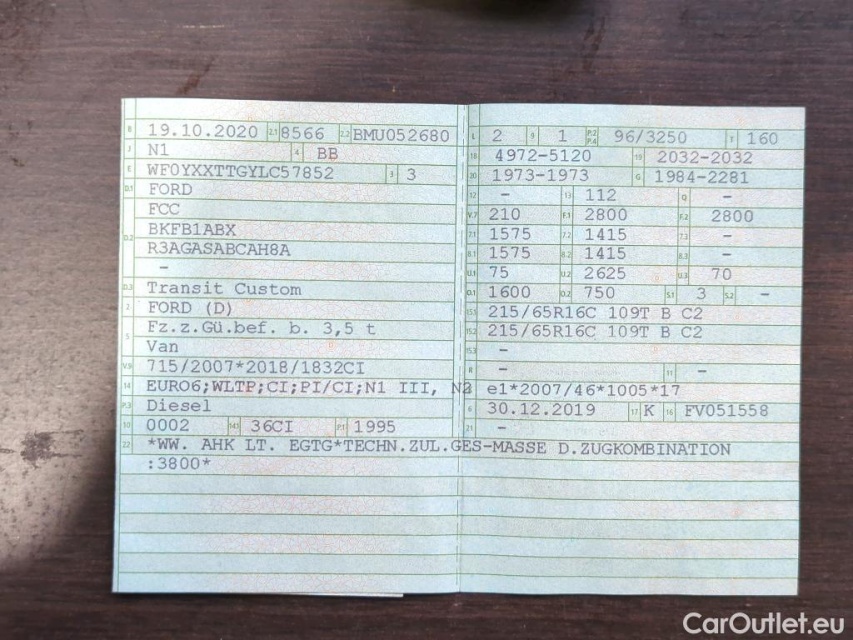 B 19.10.2020 2.1 8566 2.2 BMU052680
J N1 4 BB
E WF0YXXTTGYLC57852 3 3
D.1 FORD
FCC
D.2 BKFB1ABX
R3AGASABCAH8A
-
D.3 Transit Custom
2 FORD (D)
5 Fz.z.Gü.bef. b. 3,5 t
Van
V.9 715/2007*2018/1832CI
14 EURO6;WLTP;CI;PI/CI;N1 III, N2
P.3 Diesel
10 0002 14.1 36CI P.1 1995
22 *WW. AHK LT. EGTG*TECHN.ZUL.GES-MASSE D.ZUGKOMBINATION
:3800*
L 2 9 1 P.2 P.4 96/3250 T 160
18 4972-5120 19 2032-2032
20 1973-1973 G 1984-2281
12 - 13 112 Q -
V.7 210 F.1 2800 F.2 2800
7.1 1575 7.2 1415 7.3 -
8.1 1575 8.2 1415 8.3 -
U.1 75 U.2 2625 U.3 70
O.1 1600 O.2 750 S.1 3 S.2 -
15.1 215/65R16C 109T B C2
15.2 215/65R16C 109T B C2
15.3 -
R - 11 -
e1*2007/46*1005*17
6 30.12.2019 17 K 16 FV051558
21 -
CarOutlet.eu